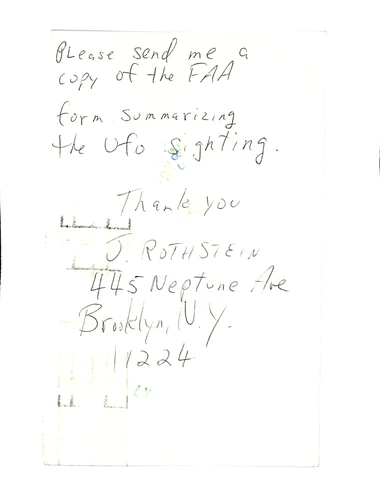 Please send me a
copy of the FAA
form summarizing
the UFO sighting.
Thank you
J. ROTHSTEIN
445 Neptune Ave
Brooklyn, N.Y.
11224